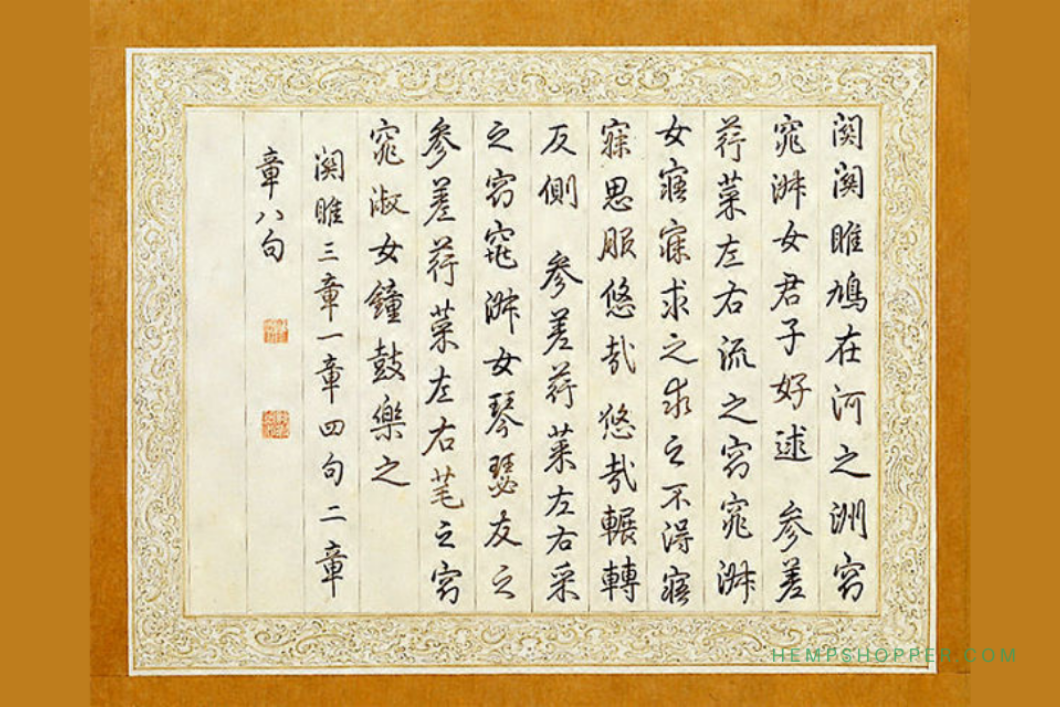 關關雎鳩在河之洲窈
窕淑女君子好逑 參差
荇菜左右流之窈窕淑
女寤寐求之求之不得寤
寐思服悠哉悠哉輾轉
反側 參差荇菜左右采
之窈窕淑女琴瑟友之
參差荇菜左右芼之窈
窕淑女鐘鼓樂之
關雎三章一章四句二章
章八句
HEMPSHOPPER.COM